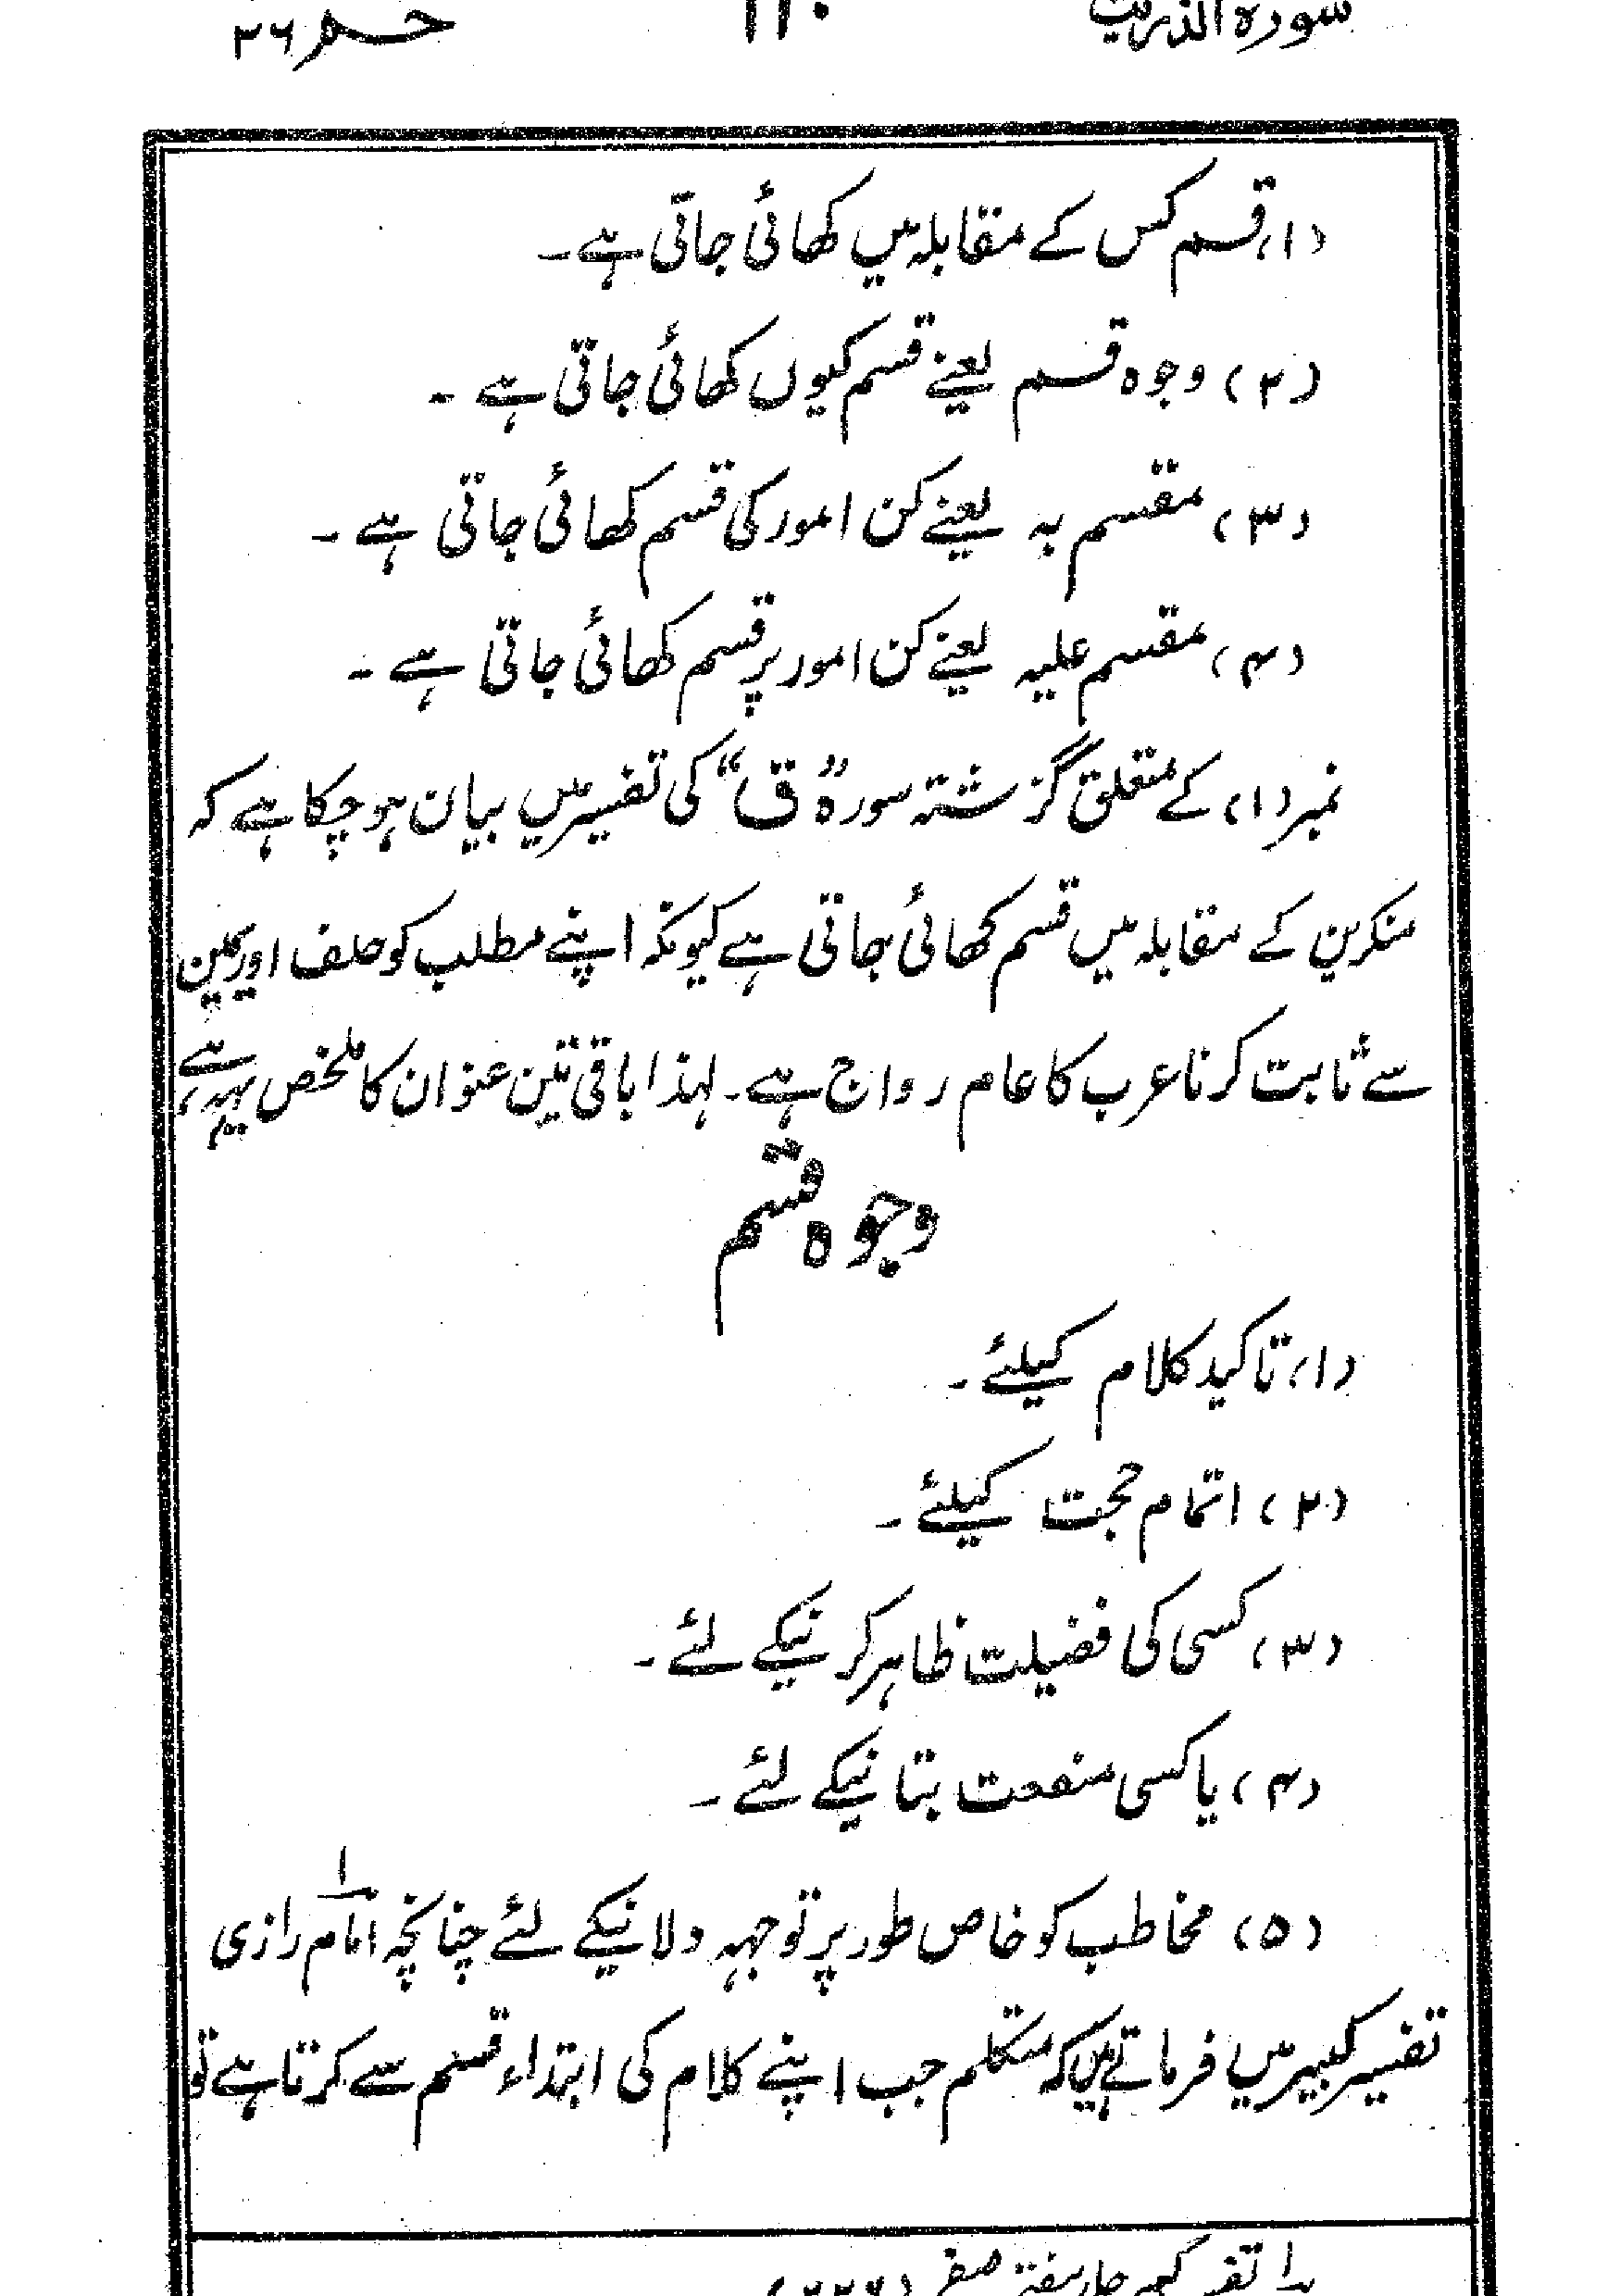 سورہ الذریت ۱۱۰ حٰم ۲۶
(۱) قسم کس کے مقابلہ میں کھائی جاتی ہے۔
(۲) وجوہ قسم یعنے قسم کیوں کھائی جاتی ہے۔
(۳) مقسم بہ یعنے کن امور کی قسم کھائی جاتی ہے۔
(۴) مقسم علیہ یعنے کن امور پر قسم کھائی جاتی ہے۔
نمبر (۱) کے متعلق گزشتہ سورہ "ق" کی تفسیر میں بیان ہو چکا ہے کہ
منکرین کے مقابلہ میں قسم کھائی جاتی ہے کیونکہ اپنے مطلب کو حلف اور یمین
سے ثابت کرنا عرب کا عام رواج ہے۔ لہذا باقی تین عنوان کا ملخص یہہ ہے،
وجوہ قسم
(۱) تاکید کلام کیلئے۔
(۲) اتمام حجت کیلئے۔
(۳) کسی کی فضیلت ظاہر کرنیکے لئے۔
(۴) یا کسی منفعت بتانیکے لئے۔
(۵) مخاطب کو خاص طور پر توجہہ دلانیکے لئے چنانچہ امام رازی ۱
تفسیر کبیر میں فرماتے ہیں کہ متکلم جب اپنے کلام کی ابتداء قسم سے کرتا ہے تو